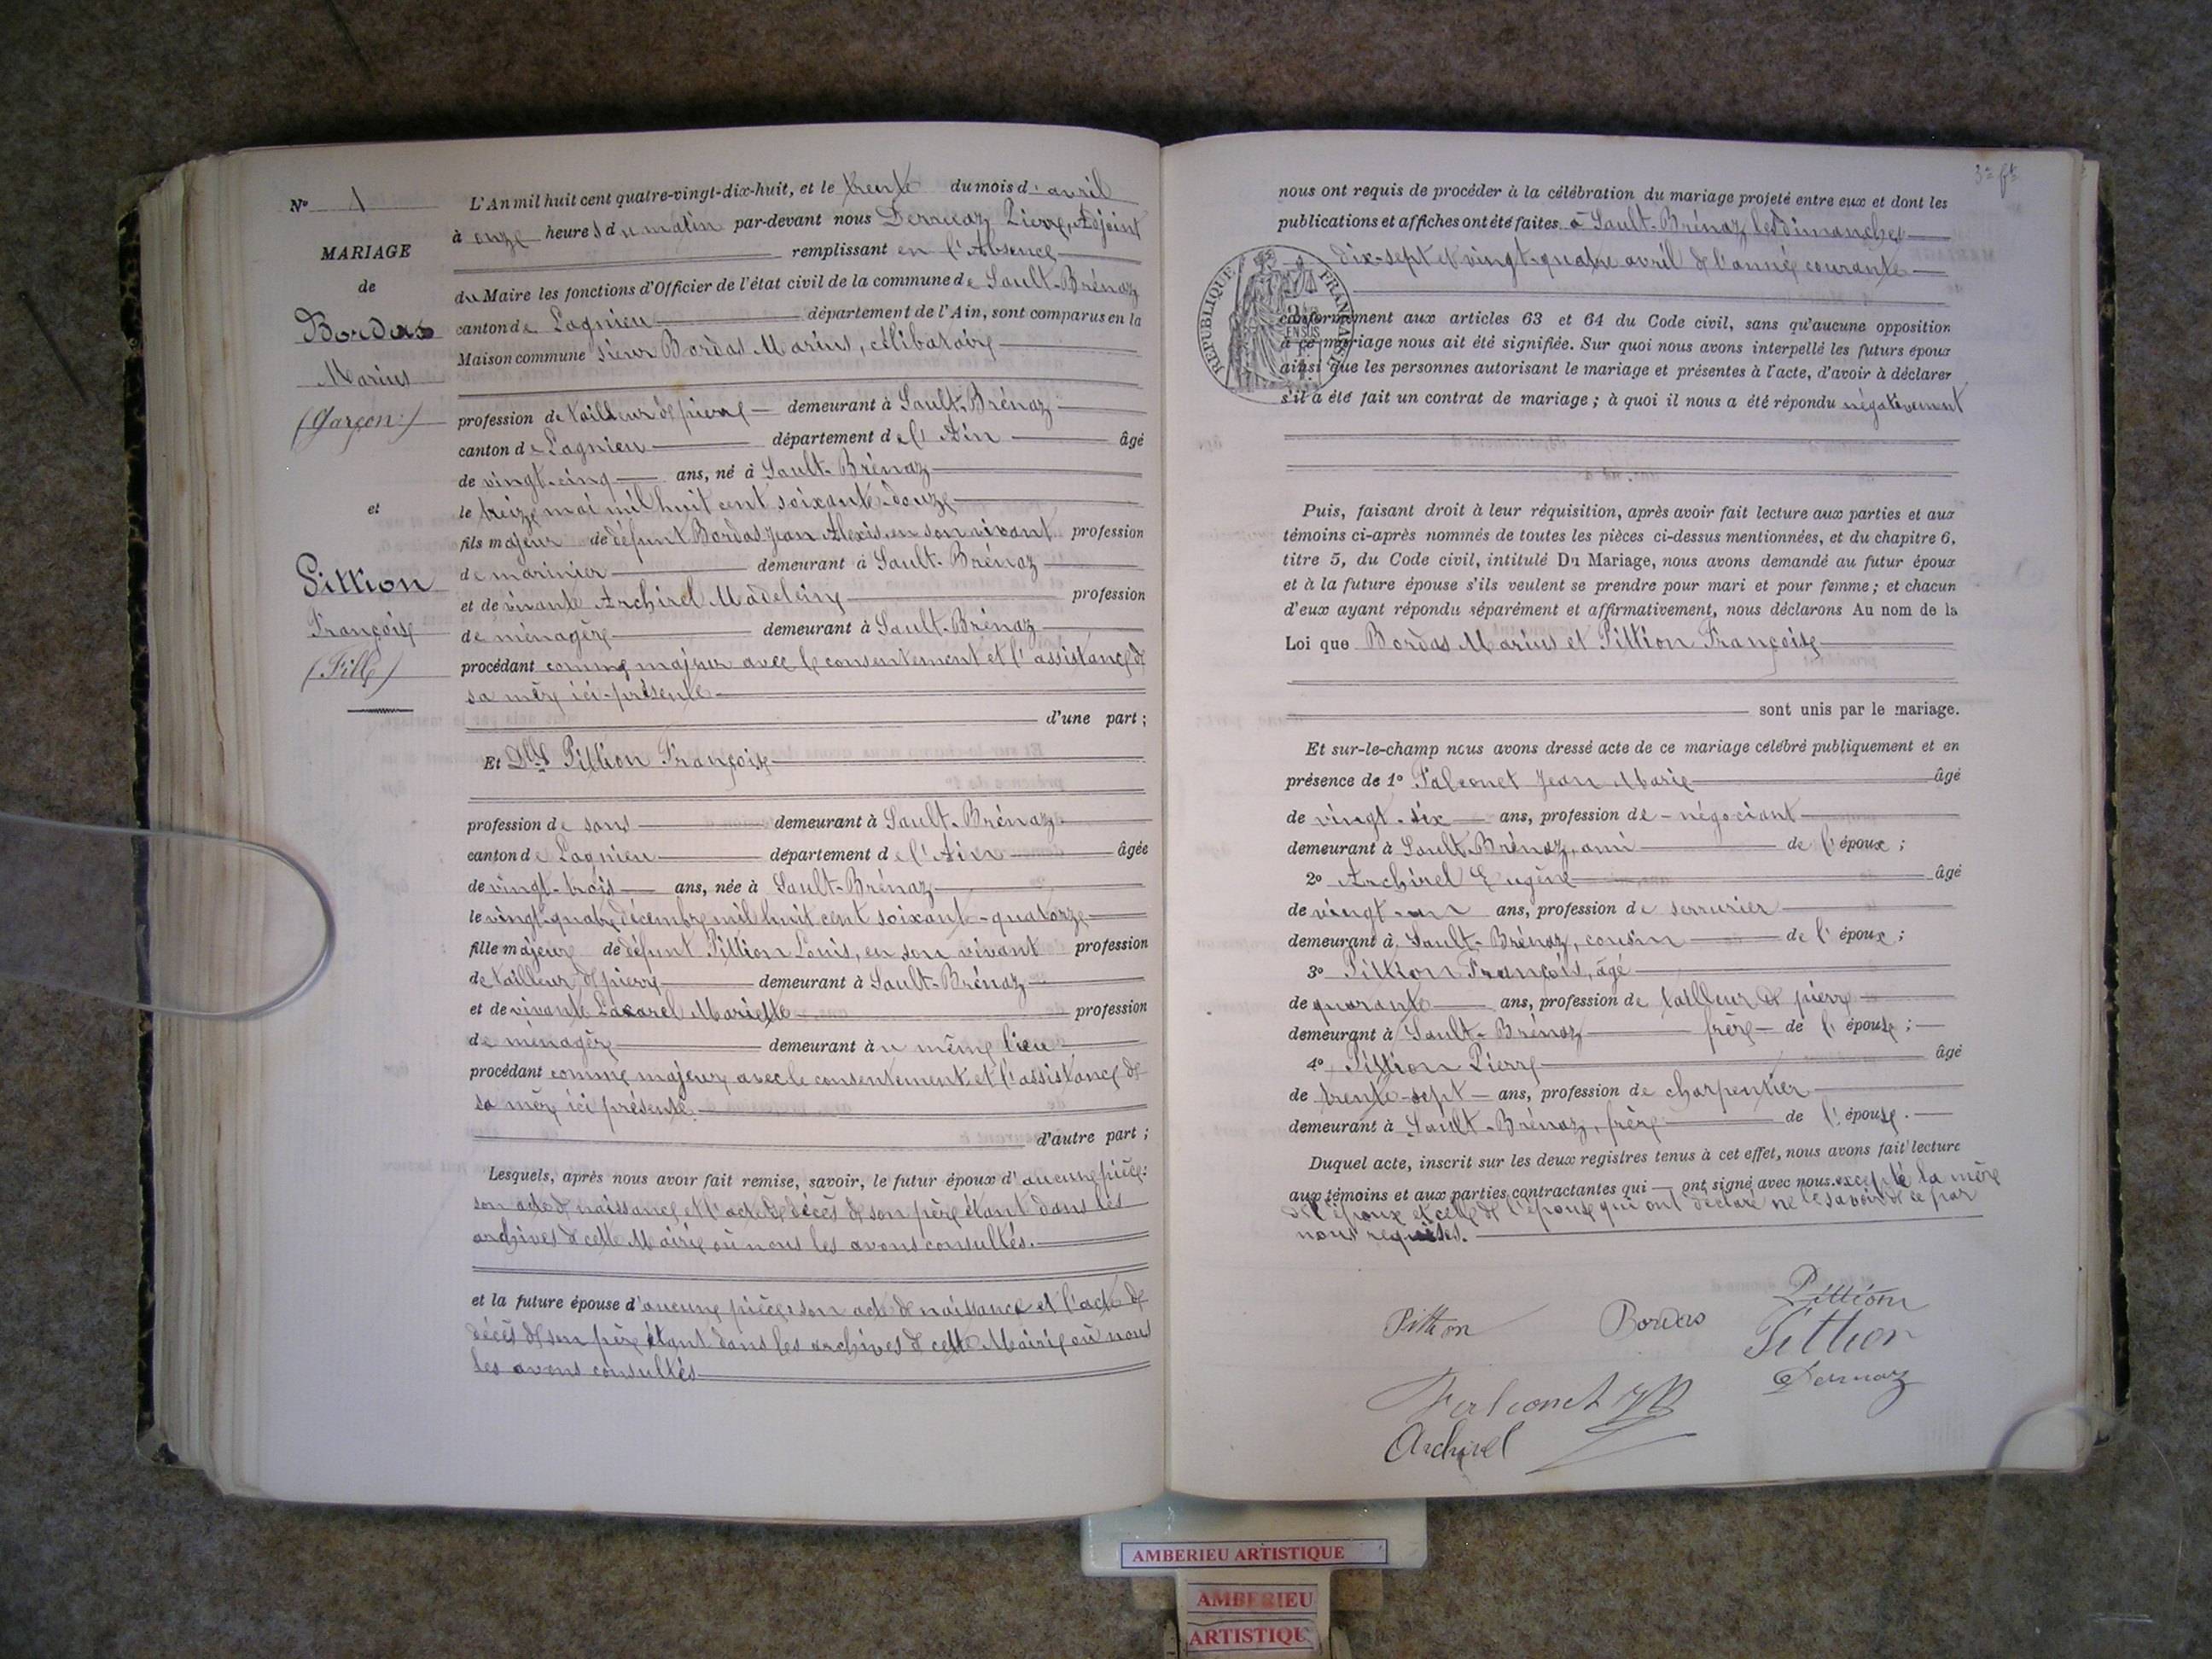 N° 1
MARIAGE
de
Bordas
Marius
(Garçon:)
et
Pittion
Françoise
(Fille)
L'An mil huit cent quatre-vingt-dix-huit, et le trente du mois d'avril
à onze heures du matin par-devant nous Dernaz Pierre, Adjoint
remplissant en l'Absence
du Maire les fonctions d'Officier de l'état civil de la commune de Sault-Brénaz
canton de Lagnieu département de l'Ain, sont comparus en la
Maison commune sieur Bordas Marius, célibataire
profession de tailleur de pierre demeurant à Sault-Brénaz
canton de Lagnieu département de l'Ain âgé
de vingt-cinq ans, né à Sault-Brénaz
le treize mai mil huit cent soixante-douze
fils majeur de défunt Bordas Jean Alexis, en son vivant profession
de marinier demeurant à Sault-Brénaz
et de vivante Archirel Madeleine profession
de ménagère demeurant à Sault-Brénaz
procédant comme majeur avec le consentement et l'assistance de
sa mère ici-présente
d'une part;
Et Dlle Pittion Françoise
profession de sans demeurant à Sault-Brénaz
canton de Lagnieu département de l'Ain âgée
de vingt-trois ans, née à Sault-Brénaz
le vingt-quatre décembre mil huit cent soixante-quatorze
fille majeure de défunt Pittion Louis, en son vivant profession
de tailleur de pierre demeurant à Sault-Brénaz
et de vivante Mariette profession
de ménagère demeurant au même lieu
procédant comme majeure avec le consentement et l'assistance de
sa mère ici présente
d'autre part;
Lesquels, après nous avoir fait remise, savoir, le futur époux d'aucune pièce:
son acte de naissance et l'acte de décès de son père étant dans les
archives de cette Mairie où nous les avons consultés.
et la future épouse d'aucune pièce: son acte de naissance et l'acte de
décès de son père étant dans les archives de cette Mairie où nous
les avons consultés
nous ont requis de procéder à la célébration du mariage projeté entre eux et dont les
publications et affiches ont été faites à Sault-Brénaz les dimanches
dix-sept et vingt-quatre avril de l'année courante
REPUBLIQUE FRANÇAISE
conformément aux articles 63 et 64 du Code civil, sans qu'aucune opposition
à ce mariage nous ait été signifiée. Sur quoi nous avons interpellé les futurs époux
ainsi que les personnes autorisant le mariage et présentes à l'acte, d'avoir à déclarer
s'il a été fait un contrat de mariage; à quoi il nous a été répondu négativement
Puis, faisant droit à leur réquisition, après avoir fait lecture aux parties et aux
témoins ci-après nommés de toutes les pièces ci-dessus mentionnées, et du chapitre 6,
titre 5, du Code civil, intitulé Du Mariage, nous avons demandé au futur époux
et à la future épouse s'ils veulent se prendre pour mari et pour femme; et chacun
d'eux ayant répondu séparément et affirmativement, nous déclarons Au nom de la
Loi que Bordas Marius et Pittion Françoise
sont unis par le mariage.
Et sur-le-champ nous avons dressé acte de ce mariage célébré publiquement et en
présence de 1° Falconet Jean Marie âgé
de vingt-six ans, profession de négociant
demeurant à Sault-Brénaz, ami de l'époux;
2° Archirel Eugène âgé
de vingt-un ans, profession de serrurier
demeurant à Sault-Brénaz, cousin de l'époux;
3° Pittion François, âgé
de quarante ans, profession de tailleur de pierre
demeurant à Sault-Brénaz frère de l'épouse;
4° Pittion Pierre âgé
de trente-sept ans, profession de charpentier
demeurant à Sault-Brénaz, frère de l'épouse.
Duquel acte, inscrit sur les deux registres tenus à cet effet, nous avons fait lecture
aux témoins et aux parties contractantes qui ont signé avec nous excepté la mère
de l'époux et celle de l'épouse qui ont déclaré ne le savoir de ce par
nous requises.
Pittion Bordas Pittion
Pittion
Dernaz
Falconet JM
Archirel
AMBERIEU ARTISTIQUE
AMBERIEU
ARTISTIQU